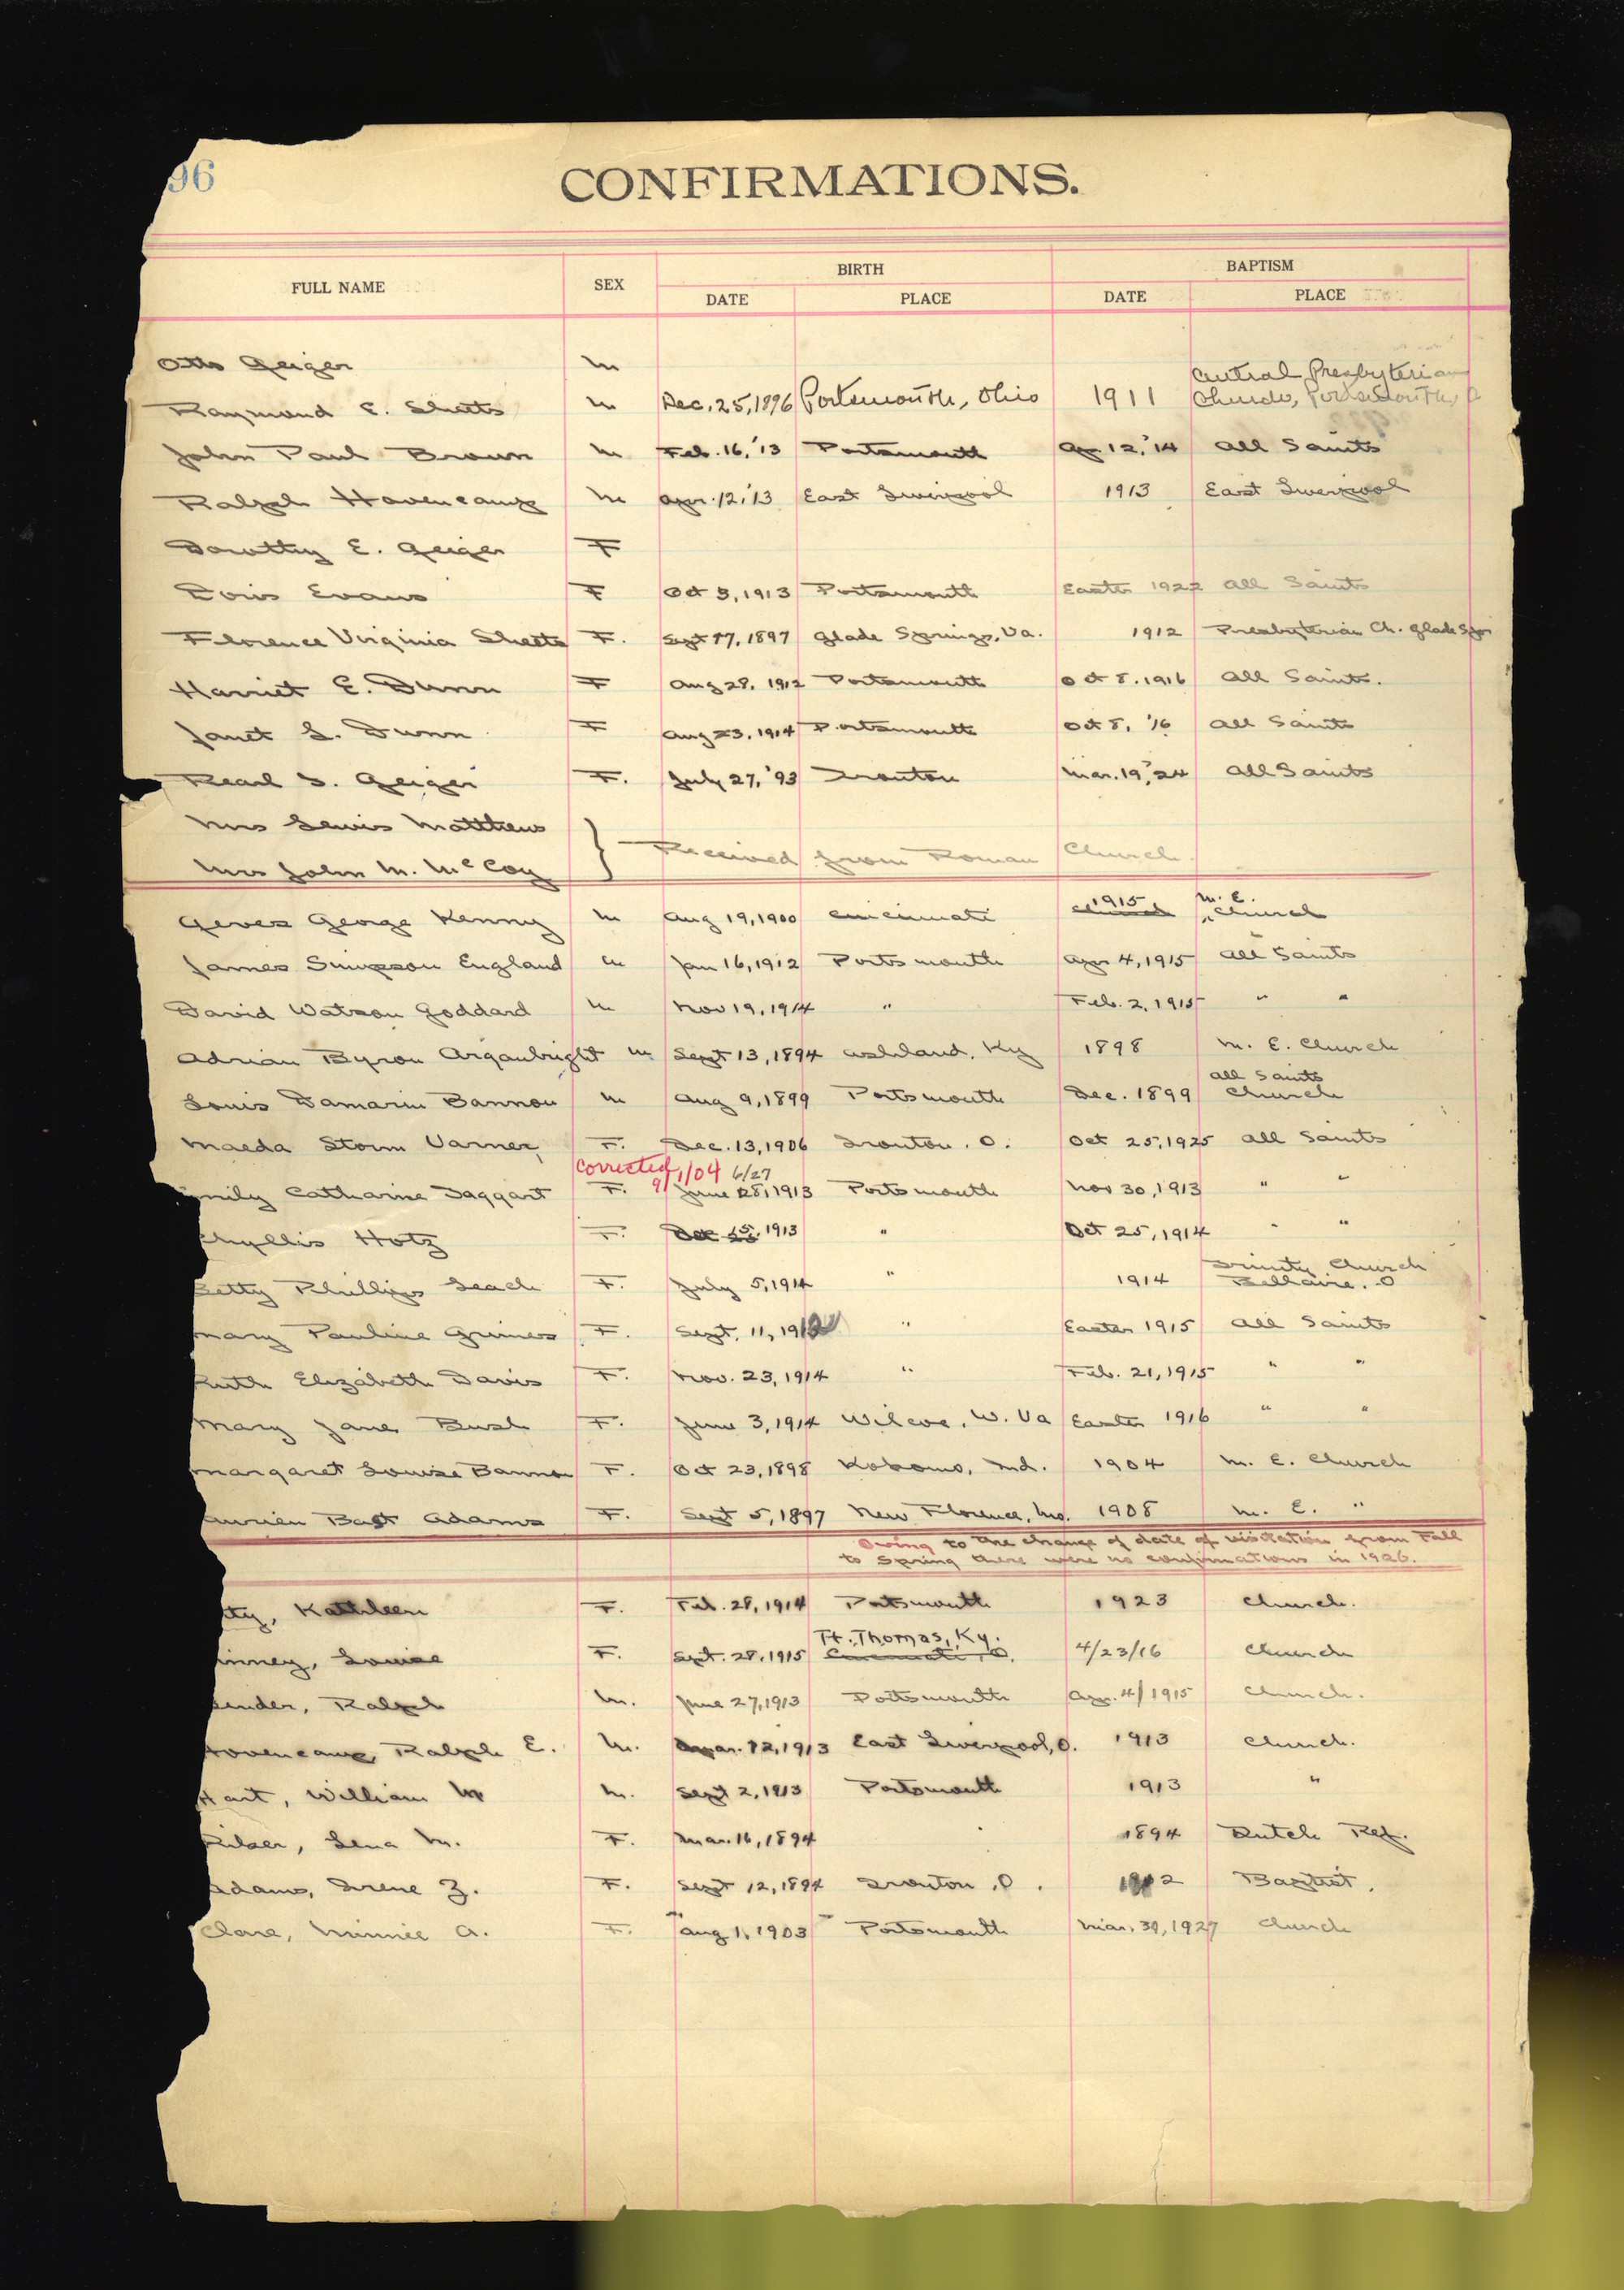 96
CONFIRMATIONS.
FULL NAME SEX BIRTH BAPTISM
DATE PLACE DATE PLACE
Otto Geiger M
Central Presbyterian
Raymond E. Sheets M Dec. 25, 1896 Portsmouth, Ohio 1911 Church, Portsmouth, O
John Paul Brown M Feb. 16, '13 Portsmouth Ap. 12, '14 All Saints
Ralph Hovencamp M Apr. 12, '13 East Liverpool 1913 East Liverpool
Dorothy E. Geiger F
Doris Evans F Oct 3, 1913 Portsmouth Easter 1922 All Saints
Florence Virginia Sheets F. Sept 17, 1897 Glade Springs, Va. 1912 Presbyterian Ch. Glade Spr
Harriet E. Dunn F Aug 28, 1912 Portsmouth Oct 8. 1916 All Saints.
Janet L. Dunn F Aug 23, 1914 Portsmouth Oct 8, '16 All Saints
Pearl S. Geiger F. July 27, '93 Ironton Mar. 19, '24 All Saints
Mrs Lewis Matthews
Received from Roman Church.
Mrs John M. McCoy
1915 M. E.
Geves George Kenny M Aug 19, 1900 Cincinnati Church Church
James Simpson England M Jan 16, 1912 Portsmouth Apr 4, 1915 All Saints
David Watson Goddard M Nov 19, 1914 " Feb. 2, 1915 " "
Adrian Byron Arganbright M Sept 13, 1894 Ashland, Ky 1898 M. E. Church
All Saints
Louis Damarin Bannon M Aug 9, 1899 Portsmouth Dec. 1899 Church
Maeda Storm Varner, F. Dec. 13, 1906 Ironton, O. Oct 25, 1925 All Saints
Corrected 9/1/04 6/27
mily Catharine Taggart F. June 28, 1913 Portsmouth Nov 30, 1913 " "
hyllis Hotz F. Dec 15, 1913 " Oct 25, 1914 " "
Trinity Church
Betty Phillips Leach F. July 5, 1914 " 1914 Bellaire, O
Mary Pauline Grimes F. Sept. 11, 191 " Easter 1915 All Saints
Ruth Elizabeth Davis F. Nov. 23, 1914 " Feb. 21, 1915 " "
Mary Jane Bush F. June 3, 1914 Wilcoe, W. Va Easter 1916 " "
Margaret Louise Bannon F. Oct 23, 1898 Kokomo, Ind. 1904 M. E. Church
aurien Bast Adams F. Sept 5, 1897 New Florence, Mo. 1908 M. E. "
Owing to the change of date of visitation from Fall
to Spring there were no confirmations in 1926.
tty, Kathleen F. Feb. 28, 1914 Portsmouth 1923 Church.
Ft. Thomas, Ky.
inney, Louise F. Sept. 28, 1915 Cincinnati, O. 4/23/16 Church
ender, Ralph M. June 27, 1913 Portsmouth Apr. 4/1915 Church.
ovencamp, Ralph E. M. Mar. 12, 1913 East Liverpool, O. 1913 Church.
Hart, William M M. Sept 2, 1913 Portsmouth 1913 "
Pilser, Lena M. F. Mar. 16, 1894 1894 Dutch Ref.
Adams, Irene Z. F. Sept 12, 1894 Ironton, O. Baptist.
Clare, Minnie A. F. Aug 1, 1903 Portsmouth Mar. 30, 1927 Church